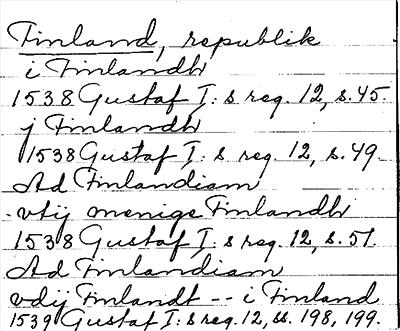 Finland, republik
i Finlandh
1538 Gustaf I: s reg. 12, s. 45.
j Finlandh
1538 Gustaf I: s reg. 12, s. 49.
Ad Finlandiam
vtij menige Finlandh
1538 Gustaf I: s reg. 12, s. 51.
Ad Finlandiam
vdij Finlandt -- i Finland
1539 Gustaf I: s reg. 12, ss. 198, 199.